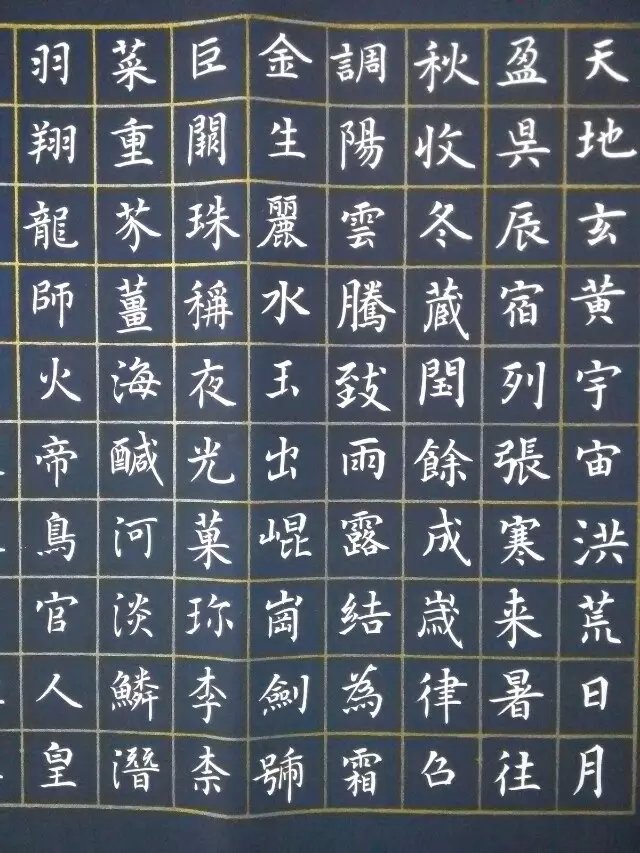 天地玄黄宇宙洪荒日月
盈昃辰宿列張寒来暑往
秋收冬蔵閏餘成歳律召
調陽雲騰致雨露結為霜
金生麗水玉出崐崗劍號
巨闕珠稱夜光菓珎李柰
菜重芥薑海醎河淡鱗潛
羽翔龍師火帝鳥官人皇